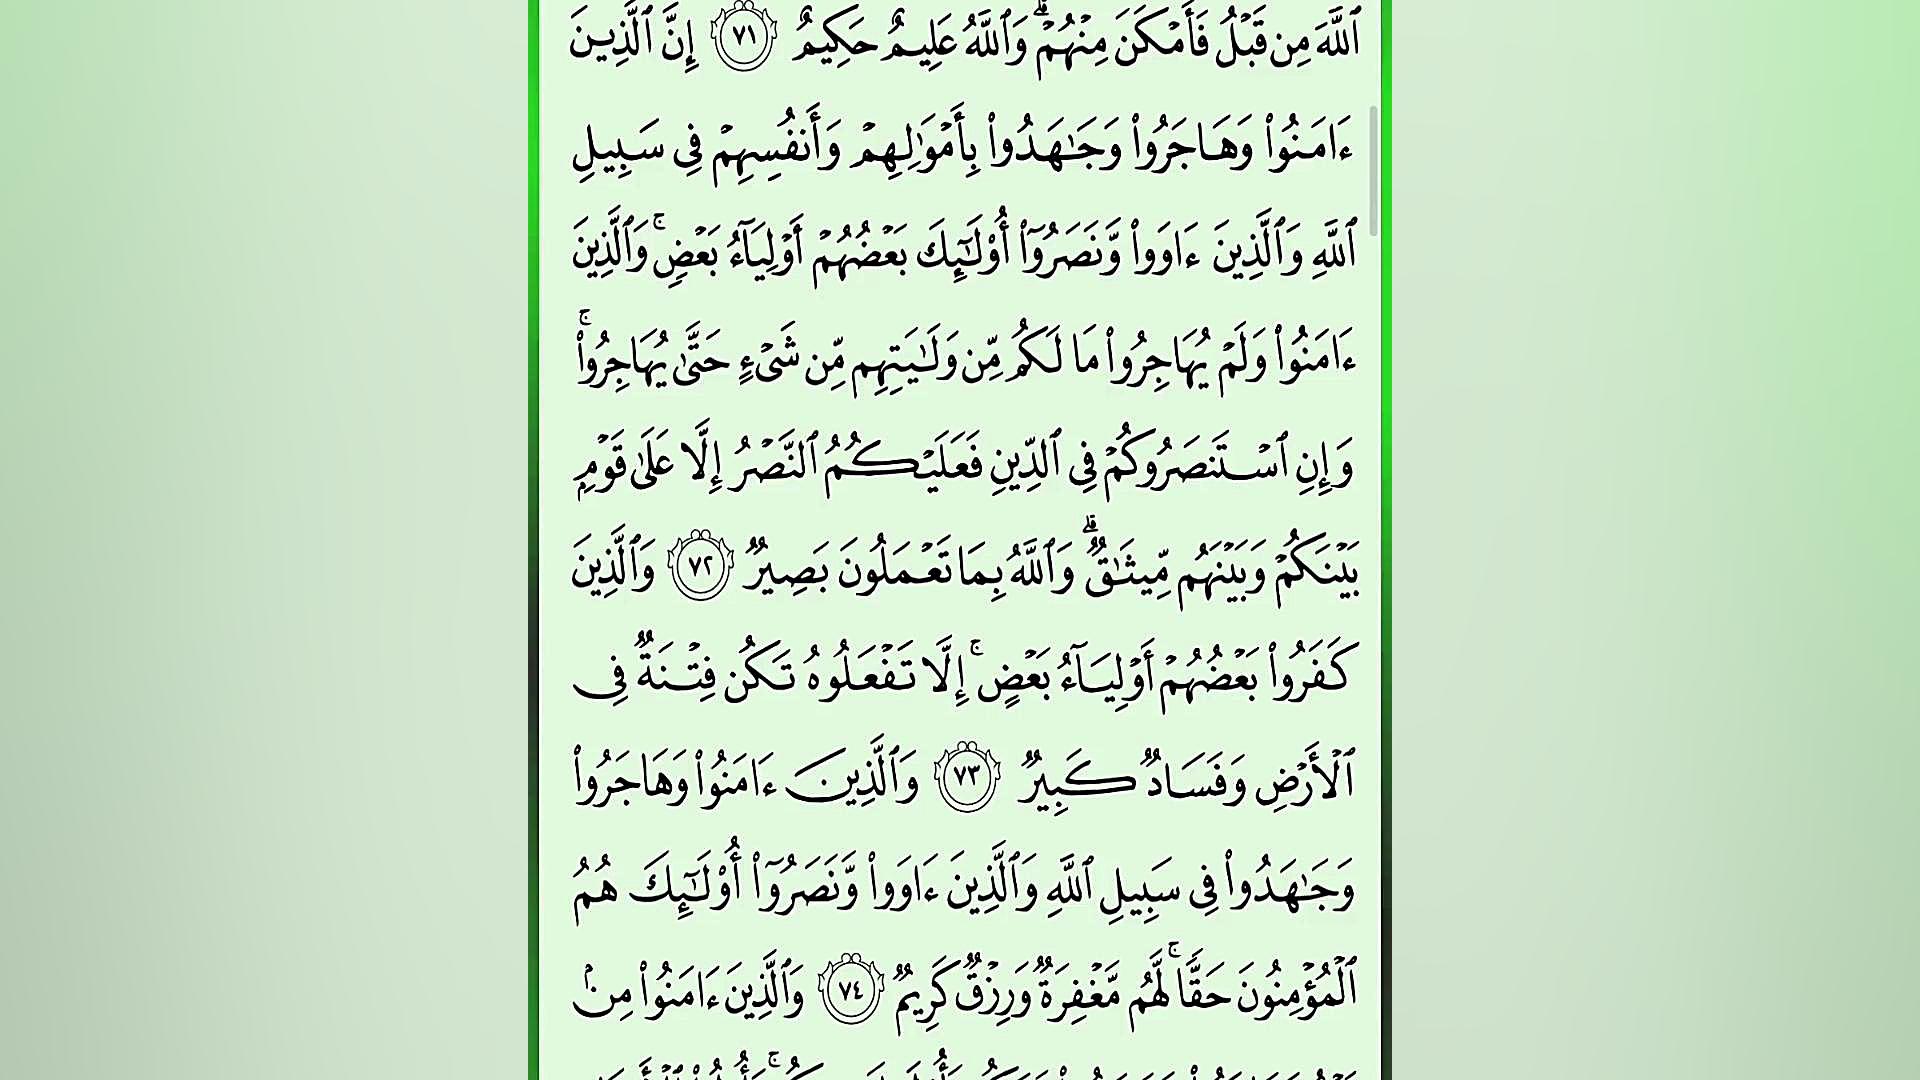 ٱللَّهَ مِن قَبْلُ فَأَمْكَنَ مِنْهُمْ ۗ وَٱللَّهُ عَلِيمٌ حَكِيمٌ ٧١ إِنَّ ٱلَّذِينَ
ءَامَنُوا۟ وَهَاجَرُوا۟ وَجَـٰهَدُوا۟ بِأَمْوَٰلِهِمْ وَأَنفُسِهِمْ فِى سَبِيلِ
ٱللَّهِ وَٱلَّذِينَ ءَاوَوا۟ وَّنَصَرُوٓا۟ أُو۟لَـٰٓئِكَ بَعْضُهُمْ أَوْلِيَآءُ بَعْضٍ ۚ وَٱلَّذِينَ
ءَامَنُوا۟ وَلَمْ يُهَاجِرُوا۟ مَا لَكُم مِّن وَلَـٰيَتِهِم مِّن شَىْءٍ حَتَّىٰ يُهَاجِرُوا۟ ۚ
وَإِنِ ٱسْتَنصَرُوكُمْ فِى ٱلدِّينِ فَعَلَيْكُمُ ٱلنَّصْرُ إِلَّا عَلَىٰ قَوْمٍۭ
بَيْنَكُمْ وَبَيْنَهُم مِّيثَـٰقٌ ۗ وَٱللَّهُ بِمَا تَعْمَلُونَ بَصِيرٌ ٧٢ وَٱلَّذِينَ
كَفَرُوا۟ بَعْضُهُمْ أَوْلِيَآءُ بَعْضٍ ۚ إِلَّا تَفْعَلُوهُ تَكُن فِتْنَةٌ فِى
ٱلْأَرْضِ وَفَسَادٌ كَبِيرٌ ٧٣ وَٱلَّذِينَ ءَامَنُوا۟ وَهَاجَرُوا۟
وَجَـٰهَدُوا۟ فِى سَبِيلِ ٱللَّهِ وَٱلَّذِينَ ءَاوَوا۟ وَّنَصَرُوٓا۟ أُو۟لَـٰٓئِكَ هُمُ
ٱلْمُؤْمِنُونَ حَقًّا ۚ لَّهُم مَّغْفِرَةٌ وَرِزْقٌ كَرِيمٌ ٧٤ وَٱلَّذِينَ ءَامَنُوا۟ مِنۢ